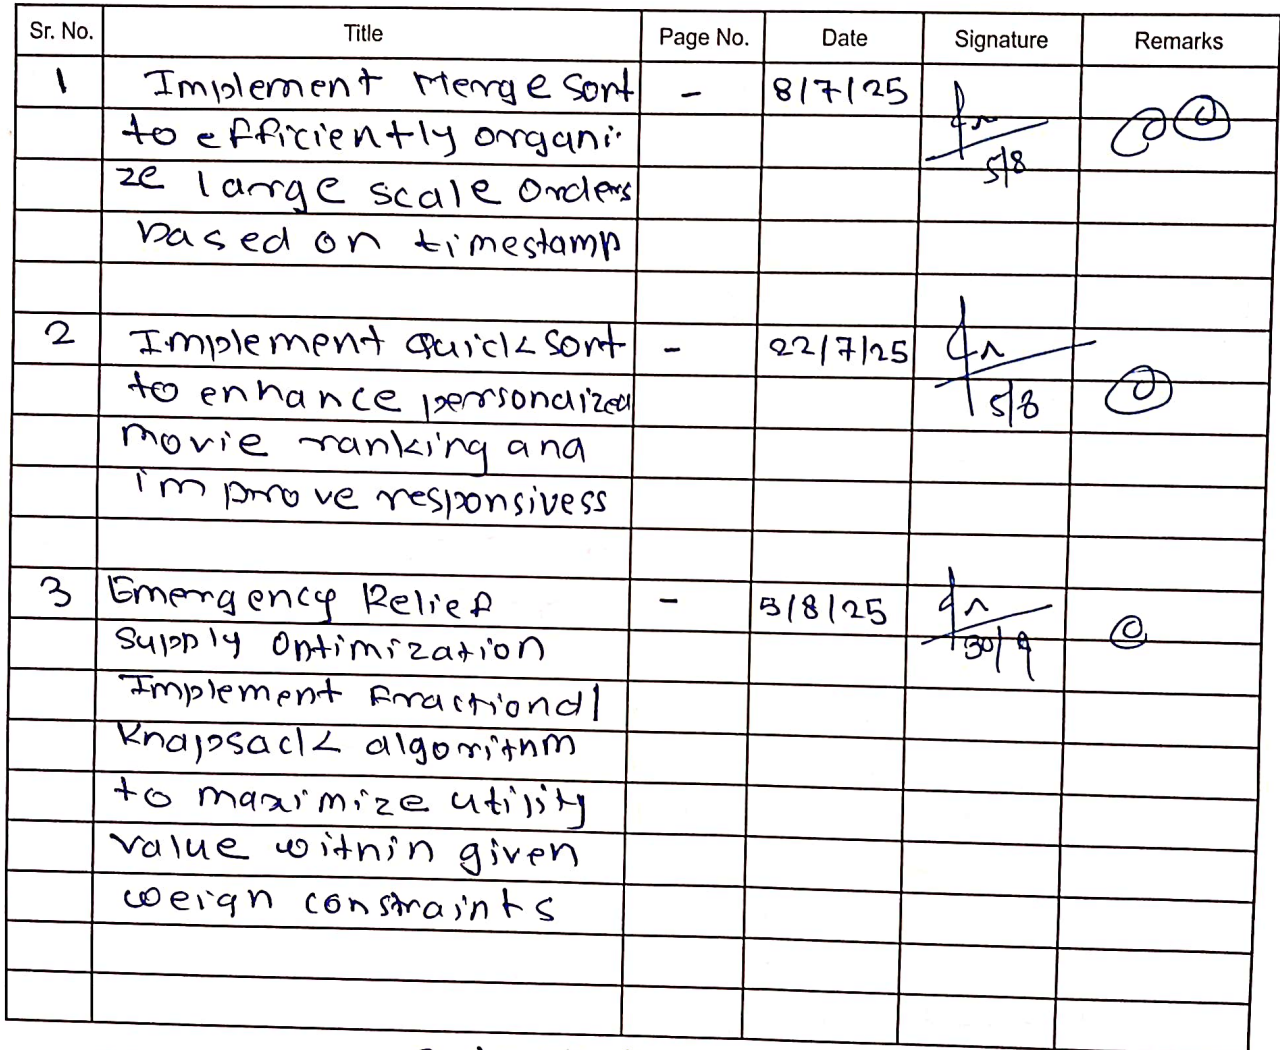 Sr. No. Title Page No. Date Signature Remarks
1 Implement Merge Sort - 8/7/25
to efficiently organi
ze large scale orders
5/8
based on timestamp
2 Implement Quick Sort - 22/7/25
to enhance personalized
5/8
movie ranking and
improve responsivess
3 Emergency Relief - 5/8/25
Supply Optimization
30/9
Implement Fractional
Knapsack algorithm
to maximize utility
value within given
weigh constraints